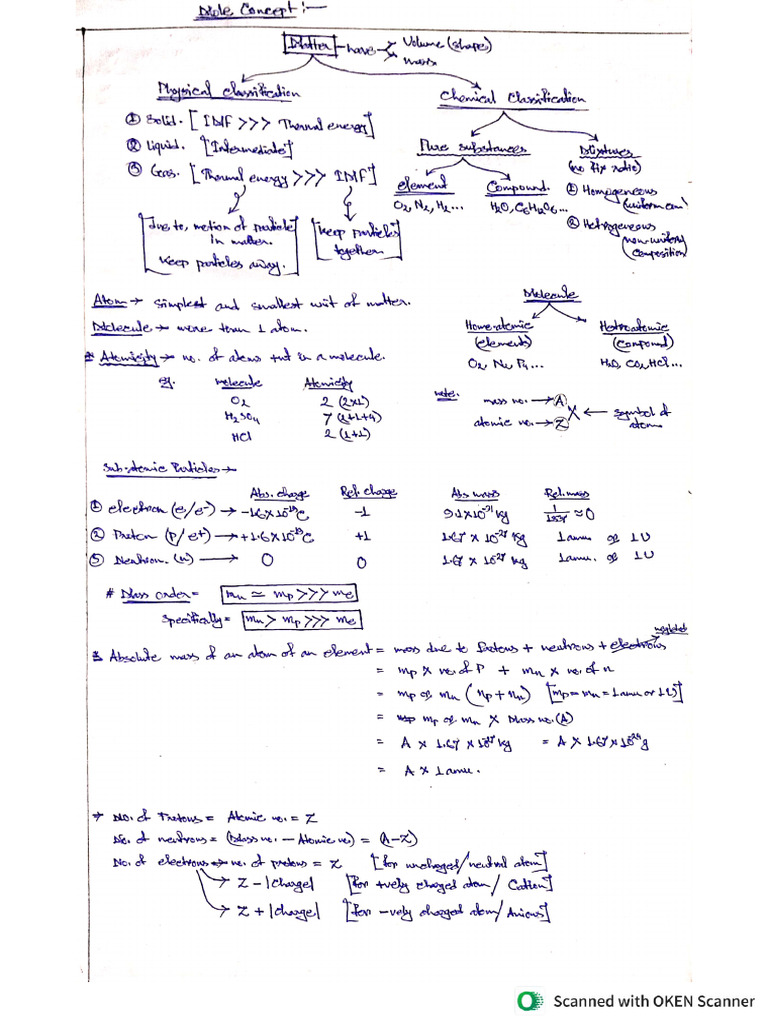 Mole Concept :—
Matter — have
Volume (shape)
mass
Physical classification
① Solid. [IMF >>> Thermal energy]
② Liquid. [Intermediate]
③ Gas. [Thermal energy >>> IMF]
Due to, motion of particle
in matter.
Keep particles away.
Keep particles
together.
Chemical Classification
Pure substances
element
O₂, N₂, H₂...
Compound.
H₂O, C₆H₁₂O₆...
Mixtures
(no fix ratio)
① Homogeneous
② Hetrogeneous
(non-uniform
composition)
Atom → simplest and smallest unit of matter.
Molecule → more than 1 atom.
* Atomicity → no. of atoms in a molecule.
eg. molecule Atomicity
O₂ 2 (2×1)
H₂SO₄ 7 (1+1+4)
HCl 2 (1+1)
Molecule
Homo-atomic
(elements)
O₂, N₂, P₄...
Hetroatomic
(compound)
H₂O, CO₂, HCl...
note.
mass no. → A
atomic no. → Z
X ← symbol of
atom
Sub-atomic Particles →
Abs. charge Rel. charge Abs mass Rel. mass
① electron (e/e⁻) → -1.6×10⁻¹⁹C -1 9.1×10⁻³¹ kg 1/1837 ≈ 0
② Proton (P/e⁺) → +1.6×10⁻¹⁹C +1 1.67 × 10⁻²⁷ kg 1 amu or 1U
③ Neutron. (n) → 0 0 1.67 × 10⁻²⁷ kg 1 amu. or 1U
# Mass order = mn ≃ mp >>> me
Specifically = mn > mp >>> me
* Absolute mass of an atom of an element = mass due to Protons + neutrons + electrons neglected
= mp × no. of P + mn × no. of n
= mp or mn (np + nn) [mp = mn = 1 amu or 1U]
= mp or mn × Mass no. (A)
= A × 1.67 × 10⁻²⁷ kg = A × 1.67 × 10⁻²⁴ g
= A × 1 amu.
→ No. of Protons = Atomic no. = Z
No. of neutrons = (Mass no. - Atomic no) = (A-Z)
No. of electrons → no. of protons = Z [for uncharged/neutral atom]
→ Z - |charge| [for +vely charged atom/ Cation]
→ Z + |charge| [for -vely charged atom/ Anions]
Scanned with OKEN Scanner